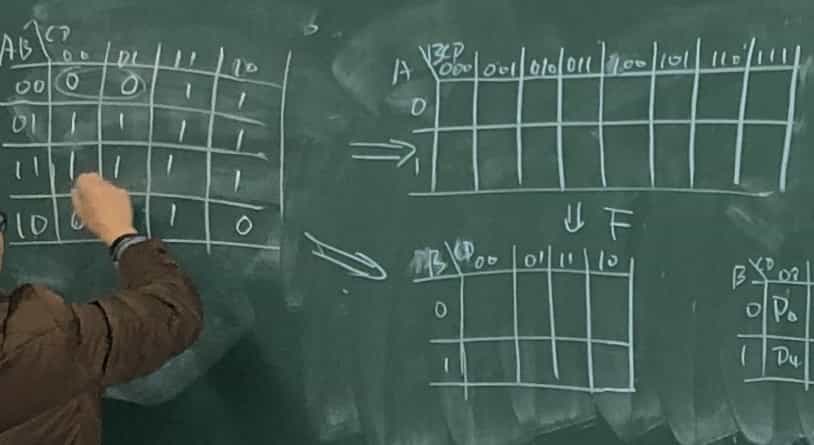 AB CD 00 01 11 10
00 0 0 1 1
01 1 1 1 1
11 1 1 1 1
10 0 1 0
A BCD 000 001 010 011 100 101 110 111
0
1
⇒
⇓ F
B CD 00 01 11 10
0
1
B CD
0 D0
1 D4